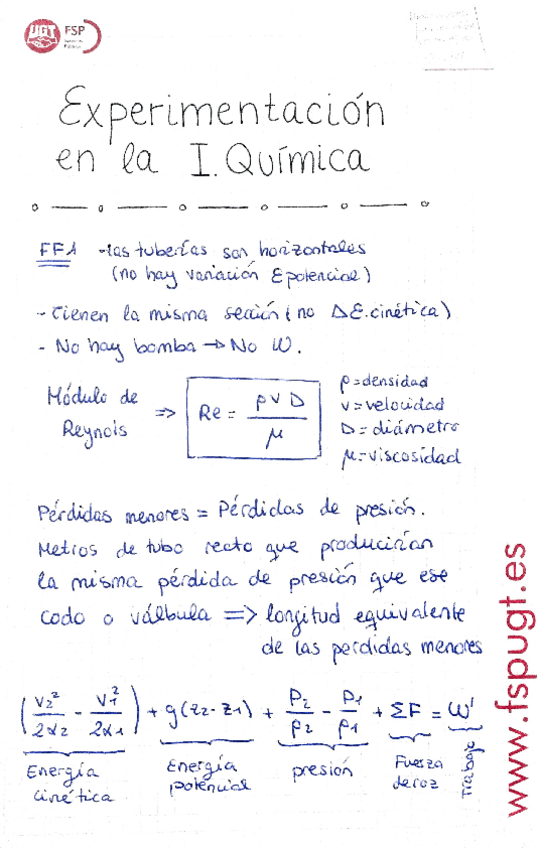 UGT FSP
Experimentación
en la I. Química
FF1 -las tuberías son horizontales
(no hay variación Epotencial)
- Tienen la misma sección (no ΔE.cinética)
- No hay bomba → No W.
Módulo de
Reynols
=> Re = ρ v D / μ
ρ = densidad
v = velocidad
D = diámetro
μ = viscosidad
Pérdidas menores = Pérdidas de presión.
Metros de tubo recto que producirían
la misma pérdida de presión que ese
codo o válbula => longitud equivalente
de las perdidas menores
(v₂²/2α₂ - v₁²/2α₁) + g(z₂-z₁) + P₂/ρ₂ - P₁/ρ₁ + ΣF = W'
Energía
cinética
Energía
potencial
presión
Fuerza
de roz
Trabajo
www.fspugt.es